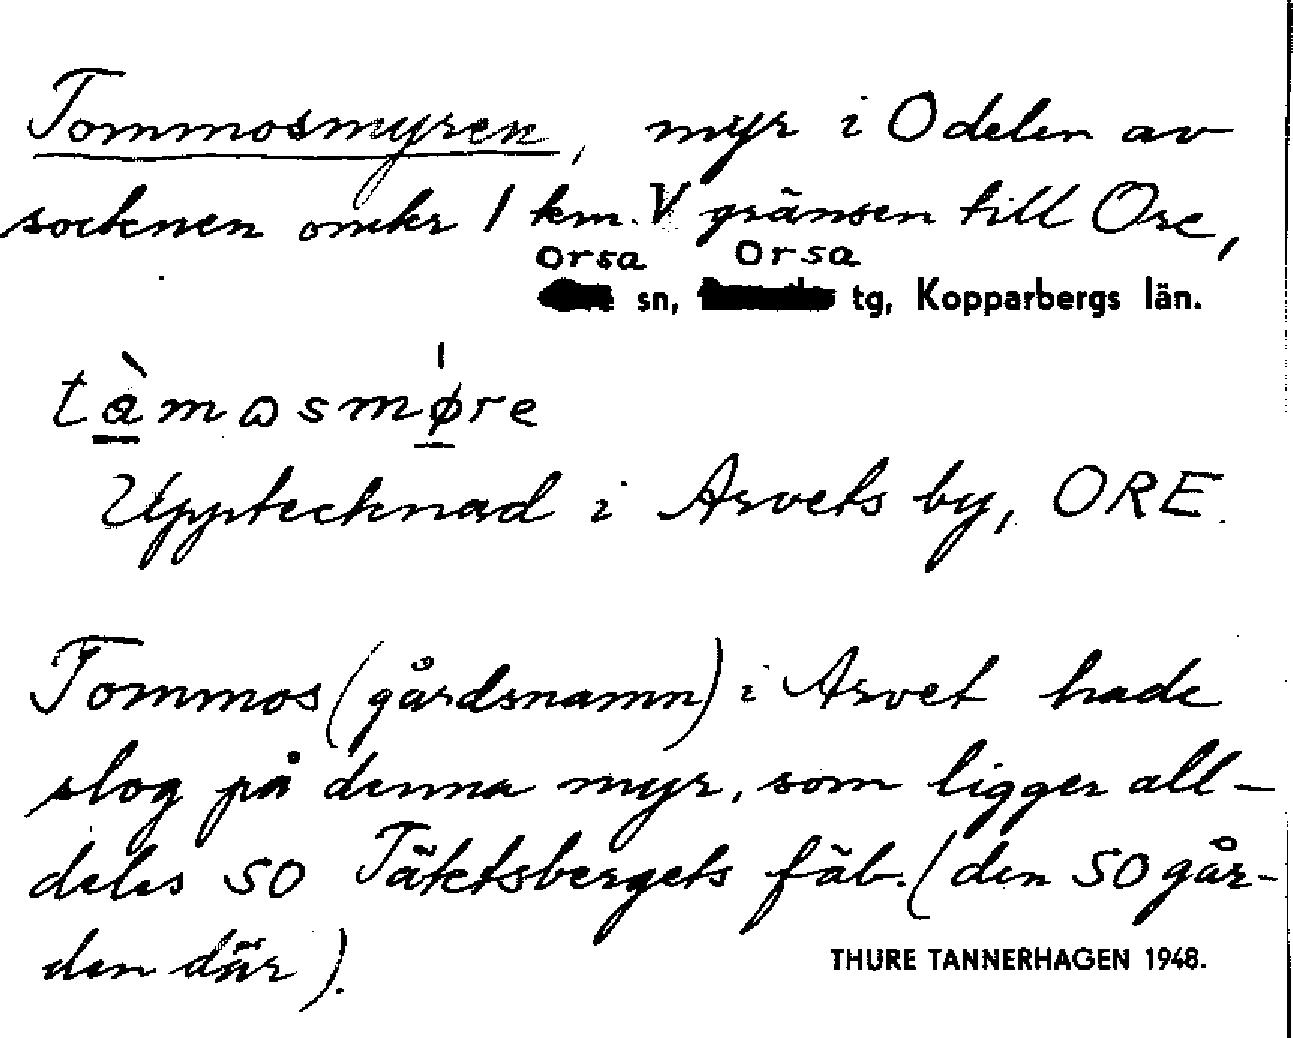 Tommosmyren, myr i O delen av
socknen omkr 1 km. V gränsen till Ore,
Orsa Orsa
sn, tg, Kopparbergs län.
tàmɷsmø̍re
Upptecknad i Arvets by, ORE.
Tommos (gårdsnamn) i Arvet hade
slog på denna myr, som ligger all-
deles SO Täktsbergets fäb. (den SO går-
den där).
THURE TANNERHAGEN 1948.